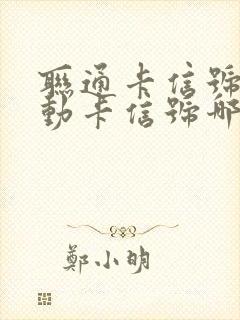 聯通卡信號
動卡信號哪
鄭小明